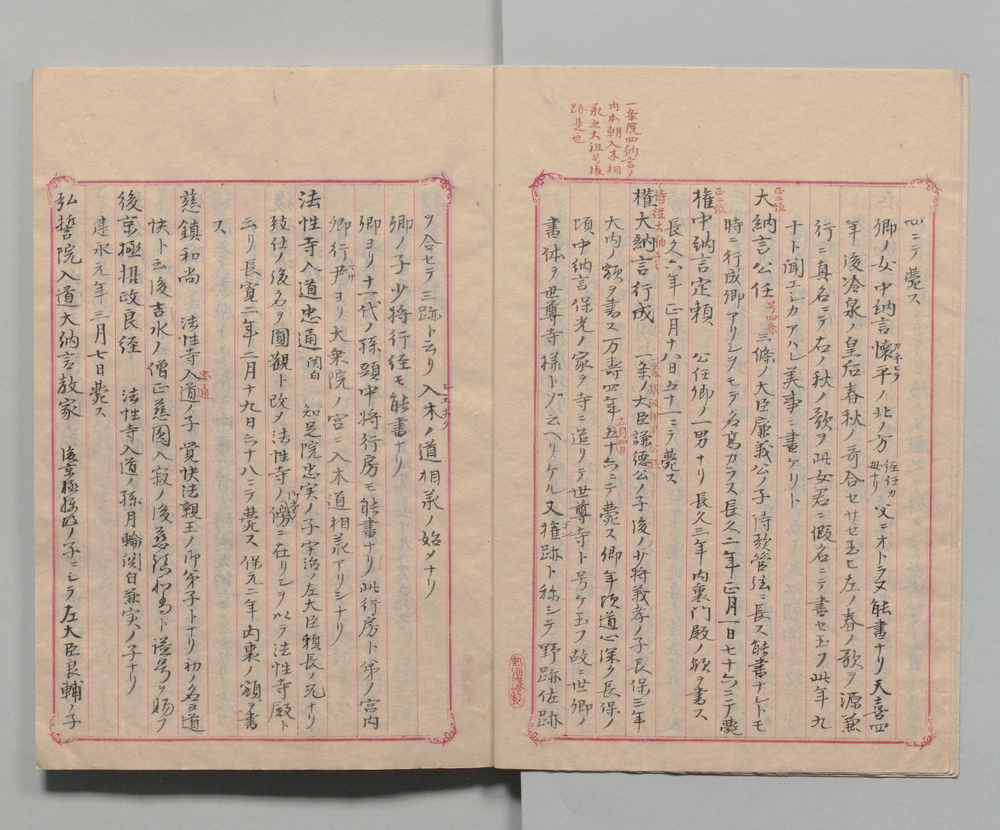 一条院四納言ノ
内本朝入木相
承之大祖号権
跡是也
四ニテ薨ス
卿ノ女中納言懐平ノ北ノ方 経任カ母ナリ 父ニオトラヌ能書ナリ天喜四
年後冷泉ノ皇后春秋ノ哥合セサセ玉ヒ左ノ春ノ歌ヲ源兼
行ニ真名ニテ右ノ秋ノ歌ヲ此女君ニ假名ニテ書セ玉フ此年九
十ト聞エシカアハレ美事ニ書ケリト
正二位
大納言公任 号四条 三條ノ大臣廉義公ノ子詩歌管弦ニ長ス能書ナケレトモ
時ニ行成卿アリシヲモテ名高カラス長久二年正月一日七十六ニテ薨
正二位
権中納言定頼 公任卿ノ一男ナリ長久三年内裏門殿ノ額ヲ書ス
長久六年正月十八日五十一ニテ薨ス
侍従大納言
權大納言行成 一条ノ大臣謙德公ノ子後ノ少将義孝ノ子長保三年
大内ノ額ヲ書ス万壽四年 十二月四日 五十六ニテ薨ス卿年頃道心深ク長保ノ
頃中納言保光ノ家ヲ寺ニ造リテ世尊寺ト号ケ玉フ故ニ世卿ノ
書体ヲ世尊寺様トゾ云ヘリケル又権跡ト称シテ野跡佐跡
ヲ合セテ三跡ト云リ入木ノ道相承ノ始メナリ
卿ノ子少将行経モ能書ナリ
卿ヨリ十一代ノ孫頭中将行房モ能書ナリ此行房ト弟ノ宮内
卿行尹ヨリ大乗院ノ宮ニ入木道相承アリシナリ
法性寺入道忠通 関白 知足院忠実ノ子宇治ノ左大臣頼長ノ兄ナリ
致仕ノ後名ヲ圓観ト改ム法性寺ノ傍ニ在リシヲ以テ法性寺殿ト
云リ長寛二年二月十九日六十八ニテ薨ス保元二年内裏ノ額ヲ書
ス
慈鎮和尚 法性寺入道 忠通 ノ子覚快法親王ノ御弟子トナリ初ノ名ヲ道
快ト云後吉水ノ僧正慈圓入寂ノ後慈鎮和尚ト謚号ヲ賜フ
後京極摂政良経 法性寺入道ノ孫月輪関白兼実ノ子ナリ
建永元年三月七日薨ス
弘誓院入道大納言教家 後京極摂政ノ子ニシテ左大臣良輔ノ子